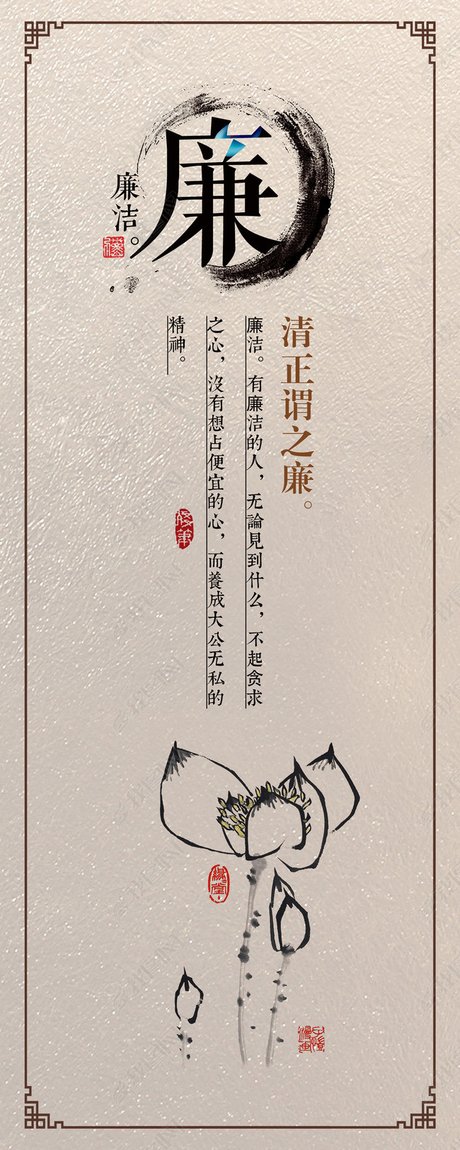 廉
廉洁。
清正谓之廉。
廉洁。有廉洁的人，无論見到什么，不起贪求
之心，沒有想占便宜的心，而養成大公无私的
精神。